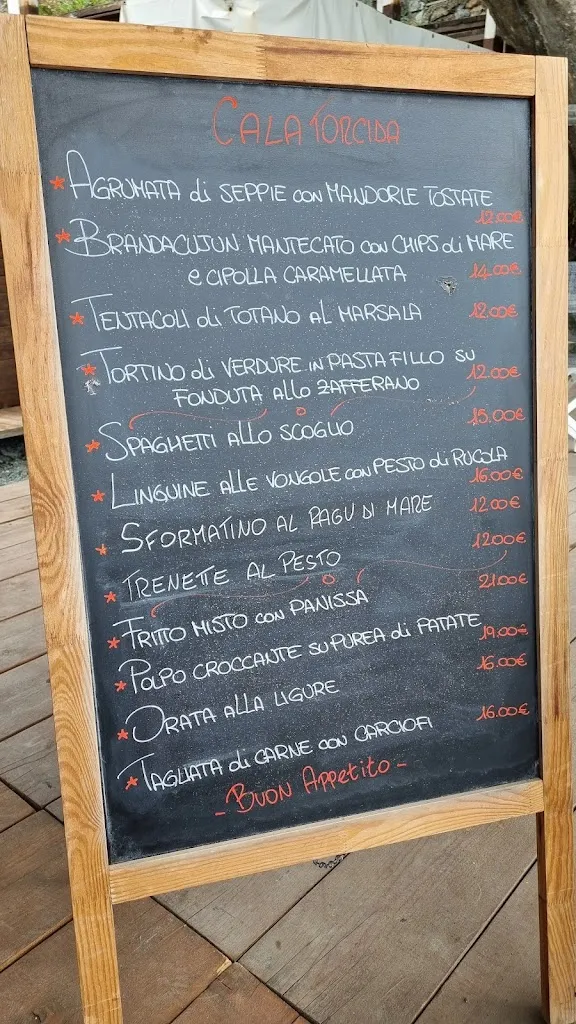 CALA TORCIDA
* AGRUMATA di SEPPIE con MANDORLE TOSTATE
12.00€
* BRANDACUJUN MANTECATO con CHIPS di MARE
e CIPOLLA CARAMELLATA 14.00€
* TENTACOLI di TOTANO AL MARSALA 12.00€
* TORTINO di VERDURE in PASTA FILLO su
FONDUTA allo ZAFFERANO 12.00€
* SPAGHETTI ALLO SCOGLIO 15.00€
* LINGUINE ALLE VONGOLE con PESTO di RUCOLA
16.00€
* SFORMATINO AL RAGU DI MARE 12.00€
* TRENETTE AL PESTO 12.00€
* FRITTO MISTO con PANISSA 21.00€
* POLPO CROCCANTE su PUREA di PATATE 19.00€
* ORATA ALLA LIGURE 16.00€
* TAGLIATA di CARNE con CARCIOFI 16.00€
- BUON APPETITO -